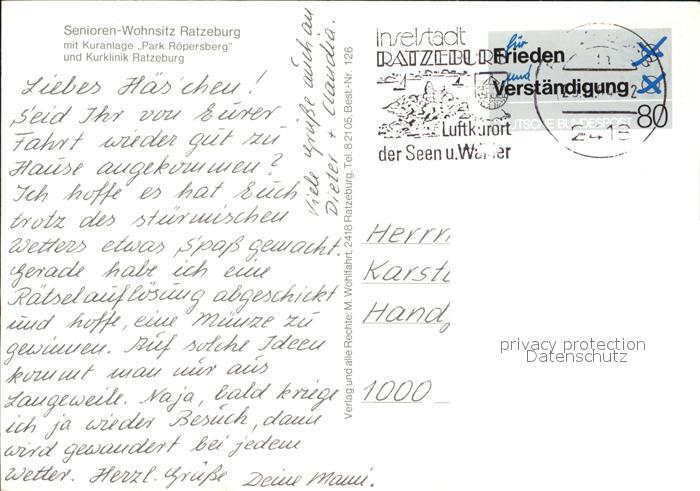 Senioren-Wohnsitz Ratzeburg
mit Kuranlage „Park Röpersberg"
und Kurklinik Ratzeburg
Liebes Häs'chen!
Seid Ihr von Eurer
Fahrt wieder gut zu
Hause angekommen?
Ich hoffe es hat Euch
trotz des stürmischen
Wetters etwas Spaß gemacht.
Gerade habe ich eine
Rätselauflösung abgeschickt
und hoffe, eine Münze zu
gewinnen. Auf solche Ideen
kommt man nur aus
Langeweile. Naja, bald kriege
ich ja wieder Besuch, dann
wird gewandert bei jedem
Wetter. Herzl. Grüße Deine Mami.
Viele Grüße auch an
Dieter + Claudia.
Verlag und alle Rechte: M. Wohlfahrt, 2418 Ratzeburg, Tel. 8 2105, Best.-Nr. 126
Inselstadt
RATZEBURG
Luftkurort
der Seen u. Wälder
2418
für
Frieden
und
Verständigung
DEUTSCHE BUNDESPOST
80
Herrn
Karst
Hand
1000
privacy protection
Datenschutz